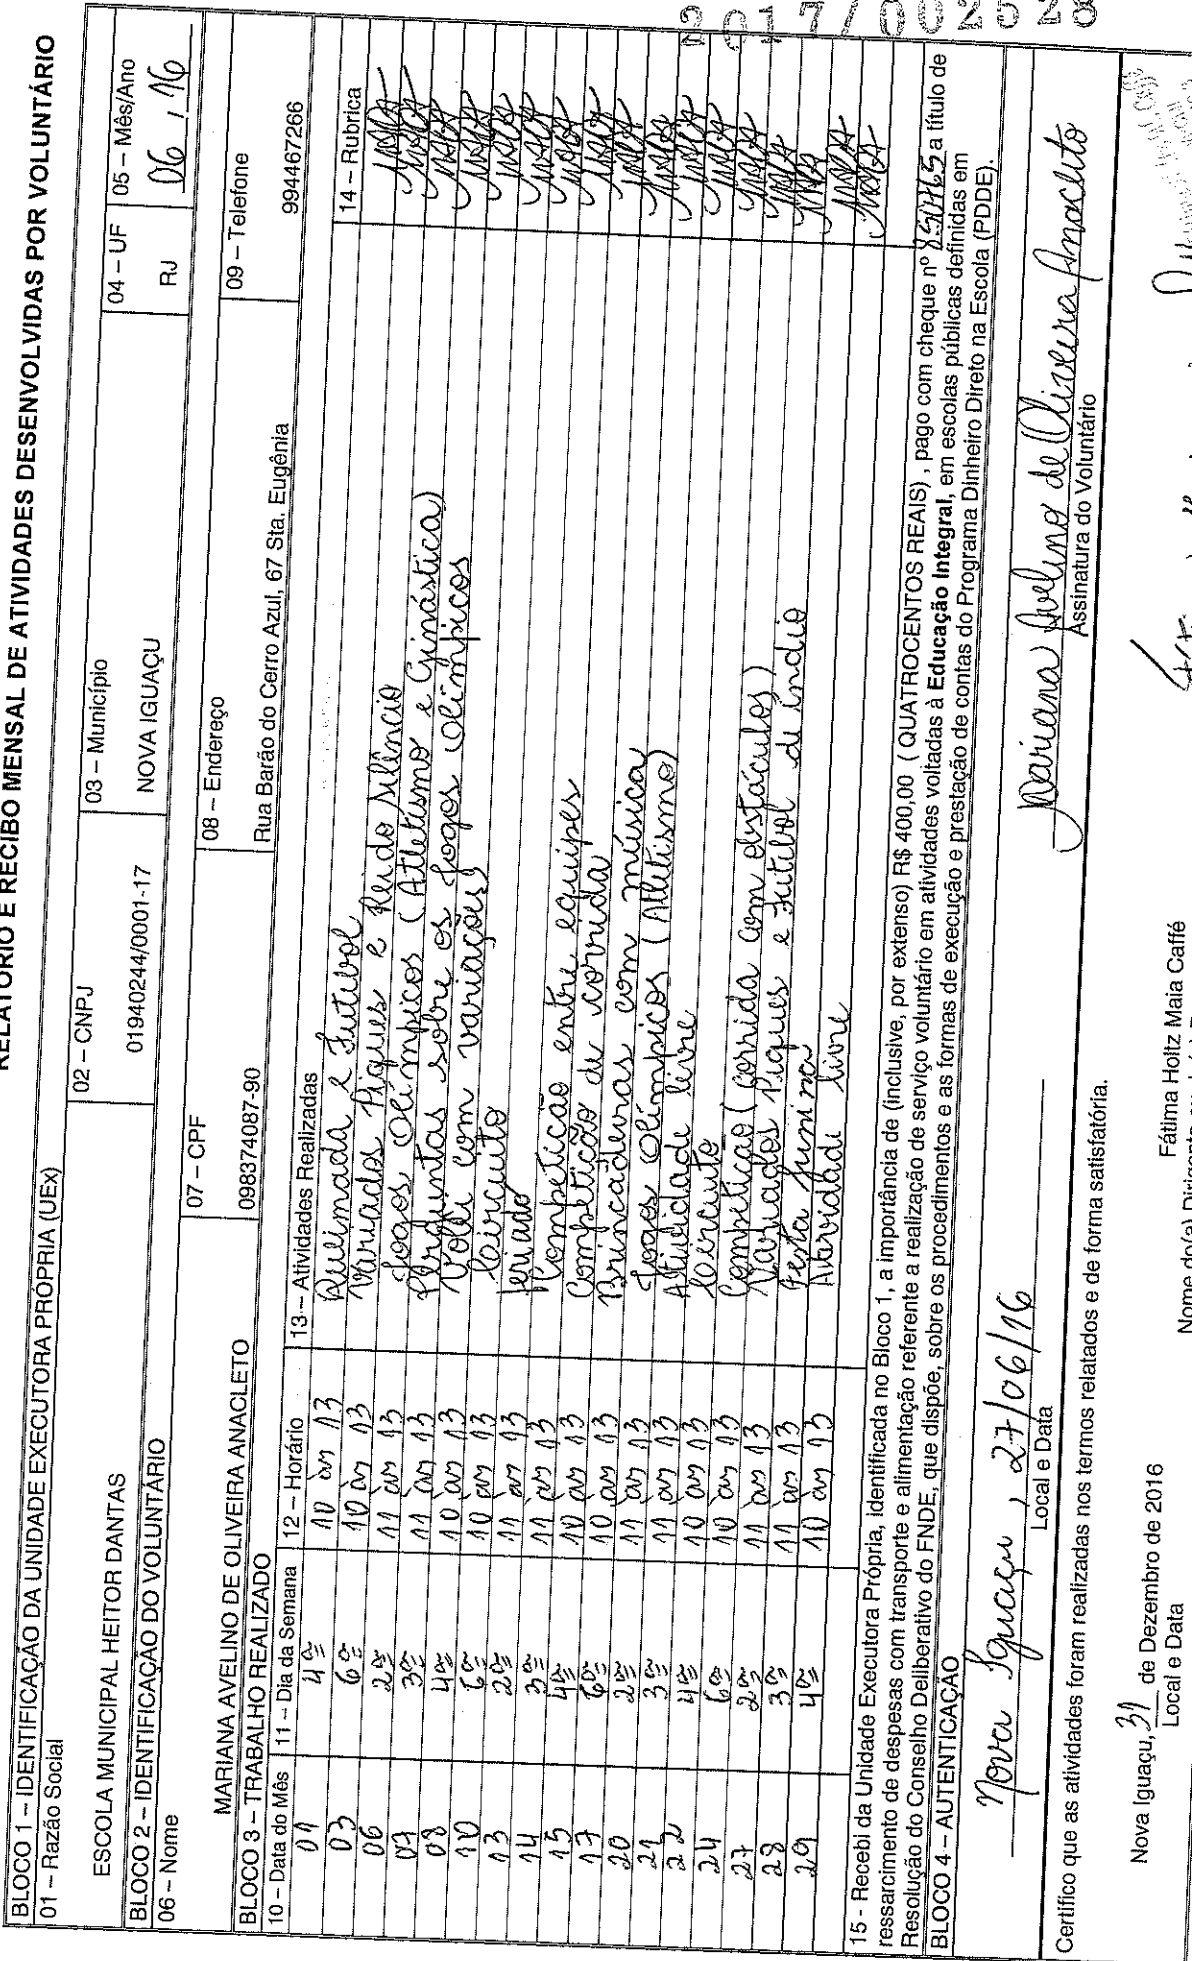 2017/002528
RELATÓRIO E RECIBO MENSAL DE ATIVIDADES DESENVOLVIDAS POR VOLUNTÁRIO
BLOCO 1 – IDENTIFICAÇÃO DA UNIDADE EXECUTORA PRÓPRIA (UEx)
01 – Razão Social 02 – CNPJ 03 – Município 04 – UF 05 – Mês/Ano
ESCOLA MUNICIPAL HEITOR DANTAS 01940244/0001-17 NOVA IGUAÇU RJ 06 / 16
BLOCO 2 – IDENTIFICAÇÃO DO VOLUNTÁRIO
06 – Nome 07 – CPF 08 – Endereço 09 – Telefone
MARIANA AVELINO DE OLIVEIRA ANACLETO 098374087-90 Rua Barão do Cerro Azul, 67 Sta. Eugênia 994467266
BLOCO 3 – TRABALHO REALIZADO
10 – Data do Mês 11 – Dia da Semana 12 – Horário 13 – Atividades Realizadas 14 – Rubrica
01 4ª 10 às 13 Queimada e Futebol
03 6ª 10 às 13 Variados Piques e Reido silêncio
06 2ª 11 às 13 Jogos Olímpicos (Atletismo e Ginástica)
07 3ª 11 às 13 Perguntas sobre os Jogos Olímpicos
08 4ª 10 às 13 Volei com variações
10 6ª 10 às 13 Circuito
13 2ª 11 às 13 feriado
14 3ª 11 às 13 Competição entre equipes
15 4ª 10 às 13 Competição de corrida
17 6ª 10 às 13 Brincadeiras com música
20 2ª 11 às 13 Jogos Olímpicos (Atletismo)
21 3ª 11 às 13 Atividade livre
22 4ª 10 às 13 Circuito
24 6ª 10 às 13 Competição (corrida com obstáculos)
27 2ª 11 às 13 Variados Piques e Futebol de índio
28 3ª 11 às 13 Festa Junina
29 4ª 10 às 13 Atividade livre
15 - Recebi da Unidade Executora Própria, identificada no Bloco 1, a importância de (inclusive, por extenso) R$ 400,00 ( QUATROCENTOS REAIS) , pago com cheque nº 850465 a título de
ressarcimento de despesas com transporte e alimentação referente a realização de serviço voluntário em atividades voltadas à Educação Integral, em escolas públicas definidas em
Resolução do Conselho Deliberativo do FNDE, que dispõe, sobre os procedimentos e as formas de execução e prestação de contas do Programa Dinheiro Direto na Escola (PDDE).
BLOCO 4 – AUTENTICAÇÃO
Nova Iguaçu, 27/06/16 Mariana Avelino de Oliveira Anacleto
Local e Data Assinatura do Voluntário
Certifico que as atividades foram realizadas nos termos relatados e de forma satisfatória.
Nova Iguaçu, 31 de Dezembro de 2016 Fátima Holtz Maia Caffé
Local e Data